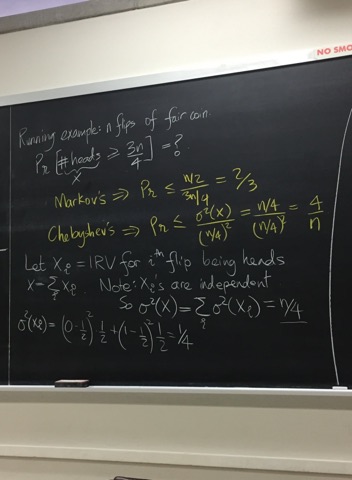 NO SMO
Running example: n flips of fair coin.
Pr [#heads ≥ 3n/4] = ?
X
Markov's ⇒ Pr ≤ (n/2)/(3n/4) = 2/3
Chebyshev's ⇒ Pr ≤ σ²(X)/(n/4)² = (n/4)/(n/4)² = 4/n
Let Xᵢ = IRV for iᵗʰ flip being heads
X = Σᵢ Xᵢ. Note: Xᵢ's are independent
So σ²(X) = Σᵢ σ²(Xᵢ) = n/4
σ²(Xᵢ) = (0-1/2)² 1/2 + (1-1/2)² 1/2 = 1/4